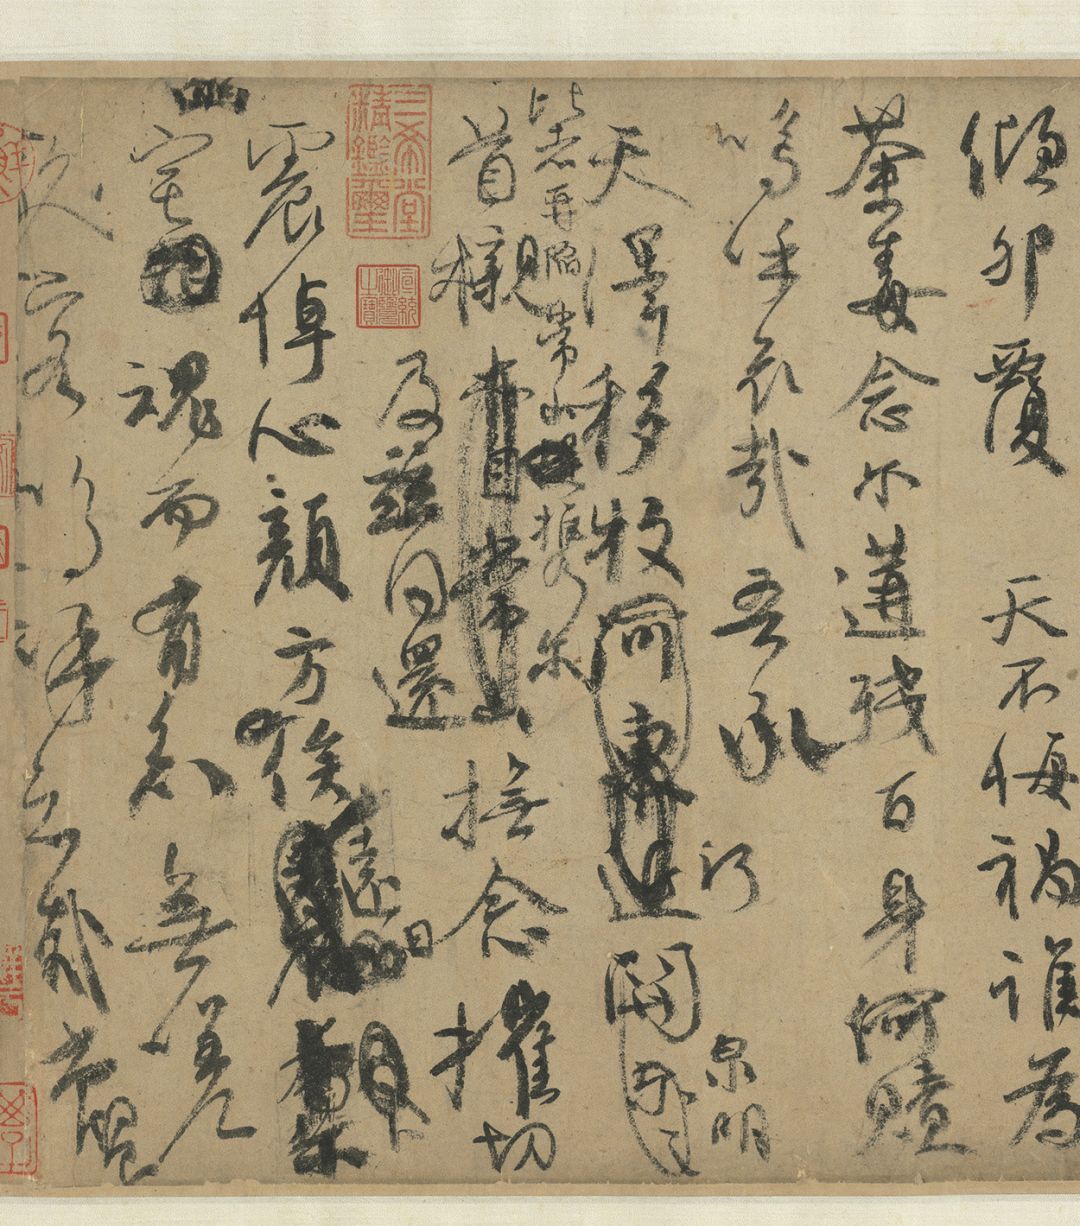 傾卵覆 天不悔禍誰為
荼毒念爾遘殘百身何贖
嗚呼哀哉吾承
天澤移牧河關
泉明
比者再陷常山攜爾
首櫬
及茲同還
撫念摧切
震悼心顏方俟遠日
幽宅
魂而有知無嗟
久客嗚呼哀哉尚饗
三希堂精鑑璽
宣統御覽之寶